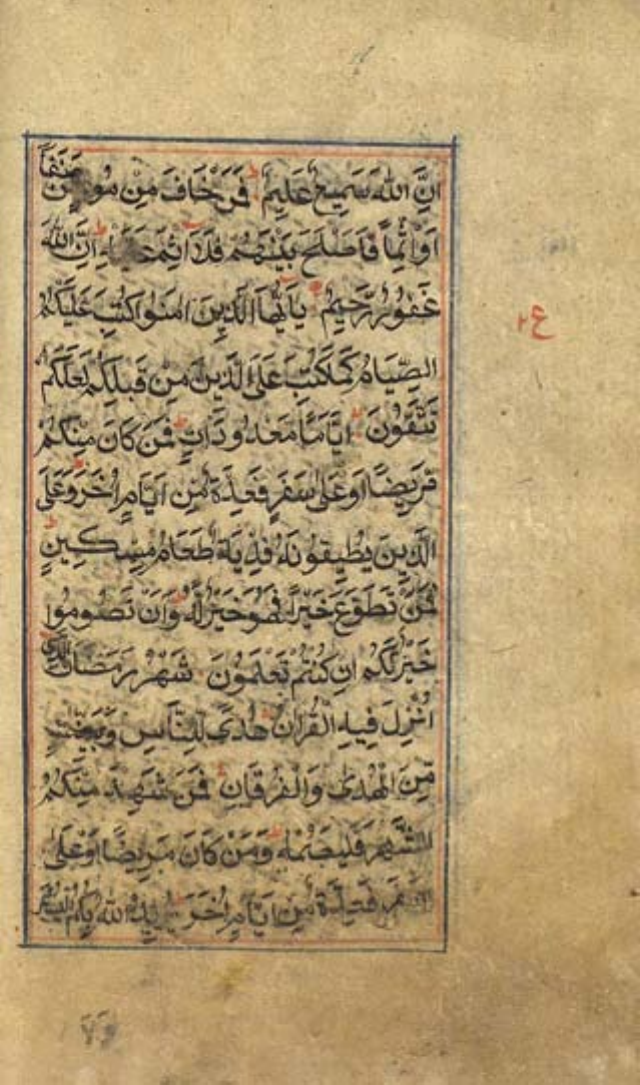 اِنَّ اللهَ سَمِيعٌ عَلِيمٌ ط فَمَنْ خَافَ مِنْ مُوصٍ جَنَفًا
اَوْ اِثْمًا فَاَصْلَحَ بَيْنَهُمْ فَلَا اِثْمَ عَلَيْهِ ط اِنَّ اللهَ
غَفُورٌ رَّحِيمٌ يٰاَيُّهَا الَّذِينَ اٰمَنُوا كُتِبَ عَلَيْكُمُ
الصِّيَامُ كَمَا كُتِبَ عَلَى الَّذِينَ مِنْ قَبْلِكُمْ لَعَلَّكُمْ
تَتَّقُونَ اَيَّامًا مَعْدُودَاتٍ ط فَمَنْ كَانَ مِنْكُمْ
مَرِيضًا اَوْ عَلٰى سَفَرٍ فَعِدَّةٌ مِنْ اَيَّامٍ اُخَرَ ط وَعَلَى
الَّذِينَ يُطِيقُونَهُ فِدْيَةٌ طَعَامُ مِسْكِينٍ ط
فَمَنْ تَطَوَّعَ خَيْرًا فَهُوَ خَيْرٌ لَّهُ ط وَاَنْ تَصُومُوا
خَيْرٌ لَكُمْ اِنْ كُنْتُمْ تَعْلَمُونَ شَهْرُ رَمَضَانَ الَّذِي
اُنْزِلَ فِيهِ الْقُرْاٰنُ هُدًى لِلنَّاسِ وَبَيِّنٰتٍ
مِّنَ الْهُدٰى وَالْفُرْقَانِ ط فَمَنْ شَهِدَ مِنْكُمُ
الشَّهْرَ فَلْيَصُمْهُ ط وَمَنْ كَانَ مَرِيضًا اَوْ عَلٰى
سَفَرٍ فَعِدَّةٌ مِنْ اَيَّامٍ اُخَرَ ط يُرِيدُ اللهُ بِكُمُ الْيُسْرَ